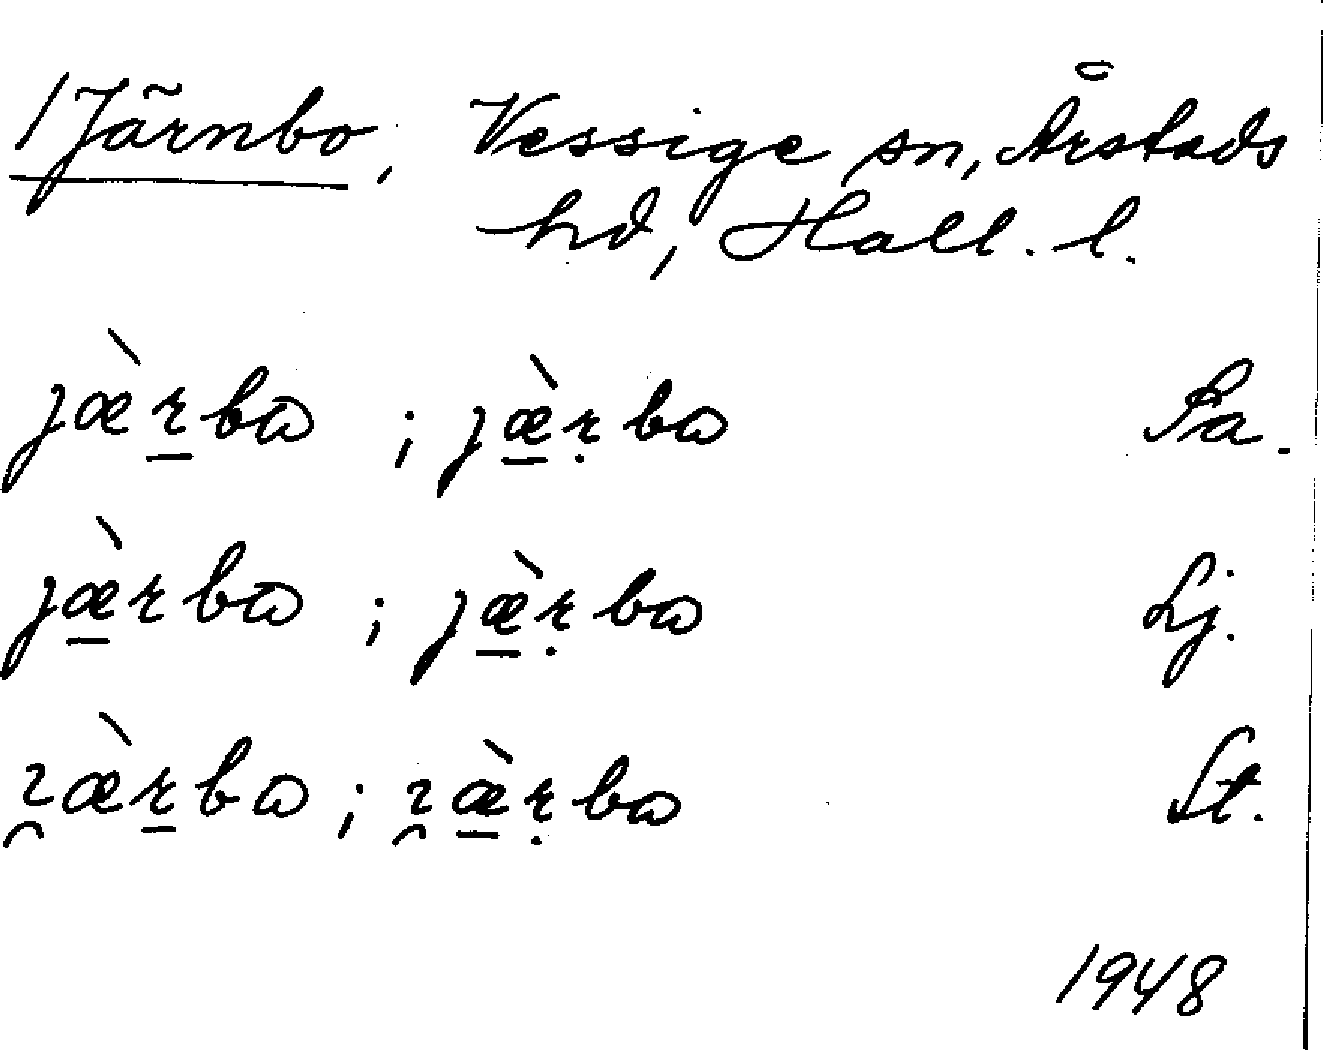 /Järnbo, Vessige sn, Årstads
hd, Hall. l.
jæ̀r̲bω ; jæ̲̀ṛbω Pa.
jæ̲̀rbω ; jæ̲̀ṛbω Lj.
ɿ̯æ̀r̲bω ; ɿ̯æ̲̀ṛbω St.
1948